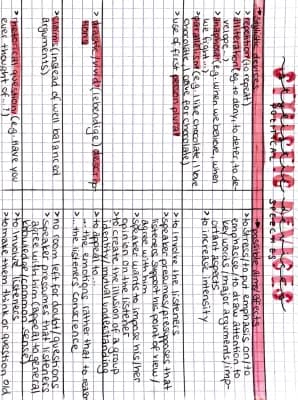 STYLISTIC DEVICES
political speeches
→ stylistic devices
> repetition (to repeat)
> alliteration (e.g. to deny, to deter, to de-
> anaphora (e.g. when we believe, when
we fight ...)
> parallelism (e.g. I like chocolate, I love
chocolate, I live for chocolate)
> use of first person plural
> drastic/vivid (lebendige) descrip-
tions
(instead of well balanced
arguments)
> rhetorical questions (e.g. Have you
ever thought of ...?)
→ possible aims/effects
> to stress/to put emphasis on/to
emphasise/to draw attention to
key words/message/arguments/imp-
ortant aspects
> to increase intensity
> to involve the listeners
> speaker presumes/presupposes that
listeners support his point of view/
agree with him
> speaker wants to impose his/her
opinion on the listener
> to create the illusion of a group
identity/mutual understanding
> to appeal to
... the emotions rather than to reason
... the listeners conscience
> no room left for doubt/questions
> speaker presumes that listeners
agree with him (appeal to general
knowledge/common sense)
> to involve listeners
> to make them think or question old